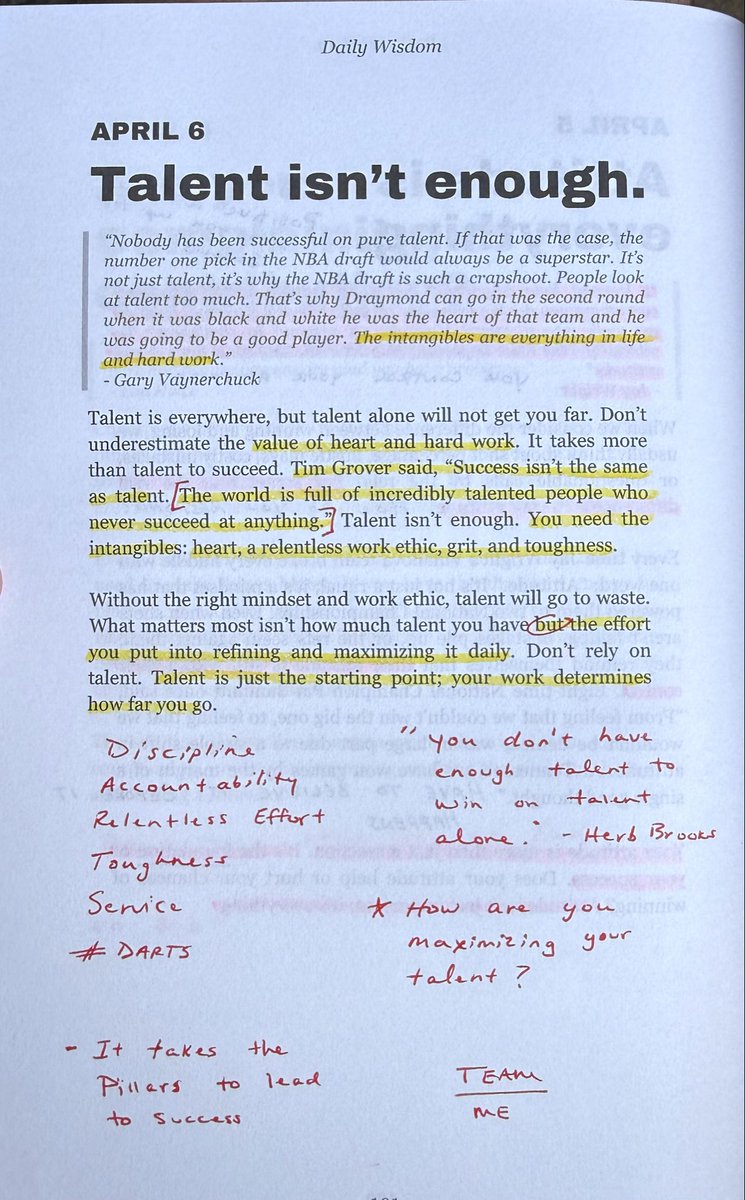 Daily Wisdom
APRIL 6
Talent isn't enough.
"Nobody has been successful on pure talent. If that was the case, the
number one pick in the NBA draft would always be a superstar. It's
not just talent, it's why the NBA draft is such a crapshoot. People look
at talent too much. That's why Draymond can go in the second round
when it was black and white he was the heart of that team and he
was going to be a good player. The intangibles are everything in life
and hard work."
- Gary Vaynerchuck
Talent is everywhere, but talent alone will not get you far. Don't
underestimate the value of heart and hard work. It takes more
than talent to succeed. Tim Grover said, "Success isn't the same
as talent. [The world is full of incredibly talented people who
never succeed at anything."] Talent isn't enough. You need the
intangibles: heart, a relentless work ethic, grit, and toughness.
Without the right mindset and work ethic, talent will go to waste.
What matters most isn't how much talent you have but the effort
you put into refining and maximizing it daily. Don't rely on
talent. Talent is just the starting point; your work determines
how far you go.
Discipline
Accountability
Relentless Effort
Toughness
Service
# DARTS
- It takes the
Pillars to lead
to success
"You don't have
enough talent to
win on talent
alone." - Herb Brooks
* How are you
maximizing your
talent?
TEAM
ME